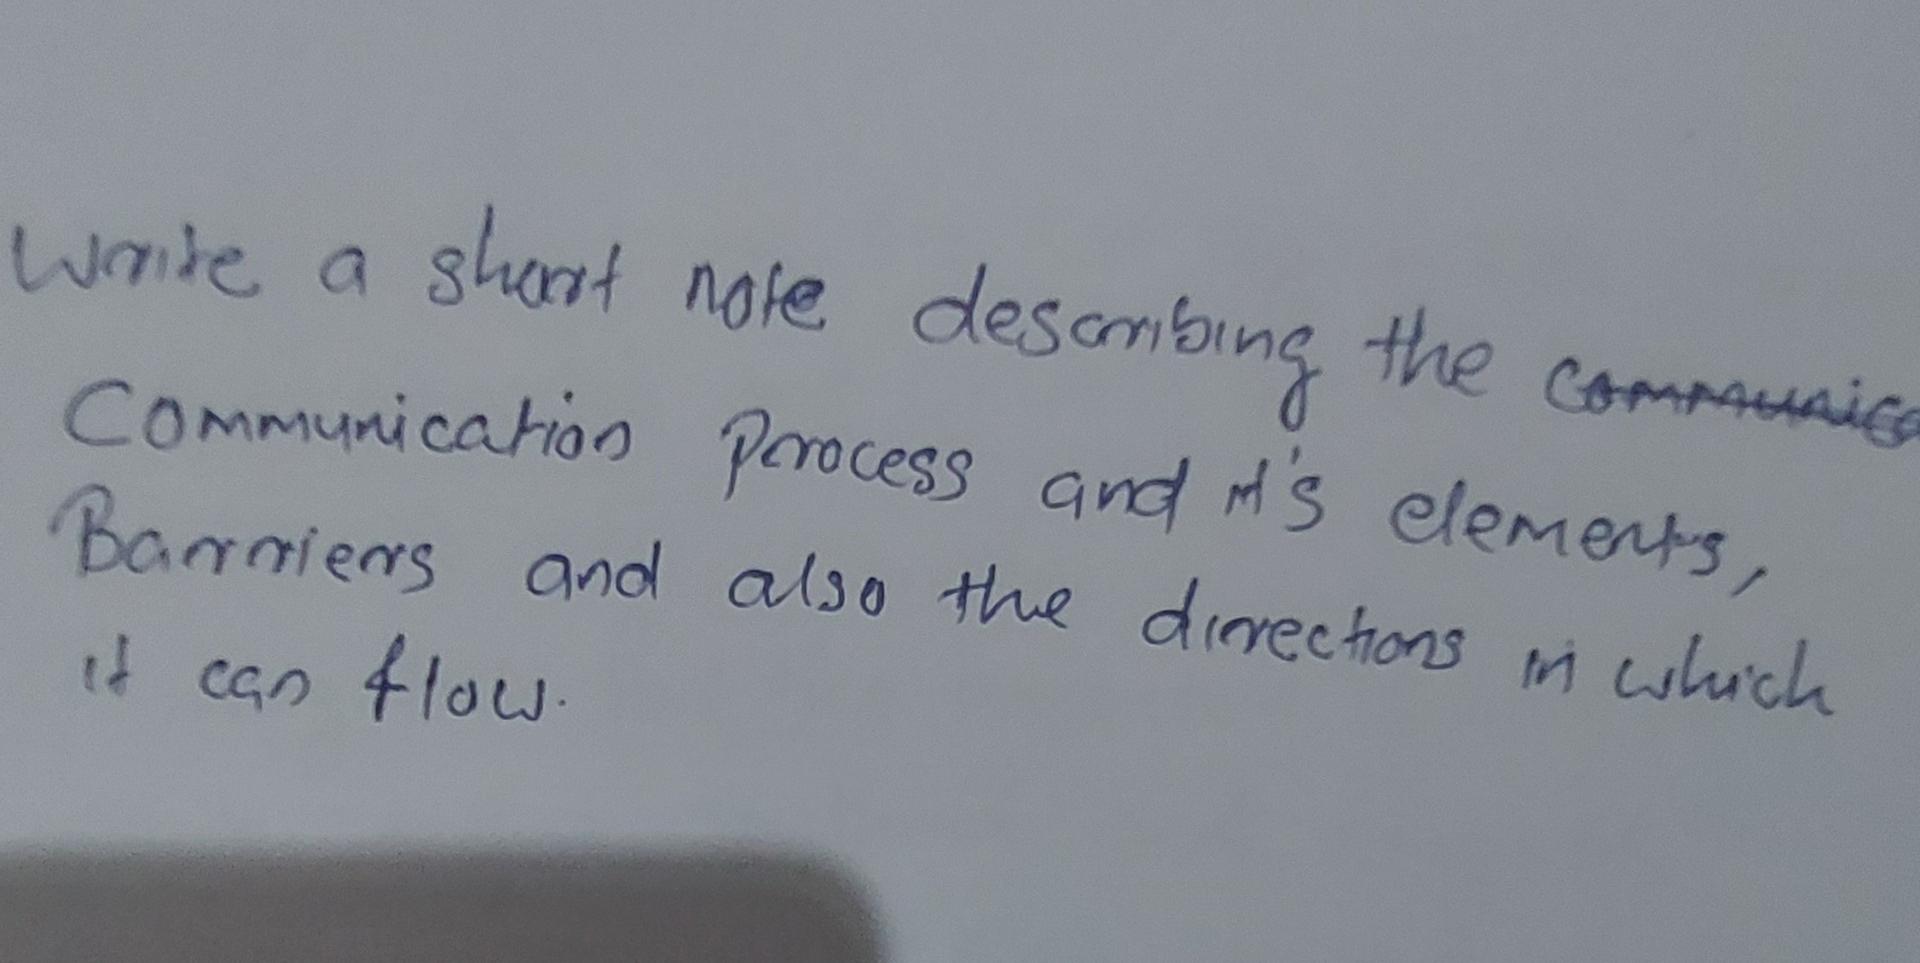 Write a short note describing the
Communication Process and it's elements,
Barriers and also the directions in which
it can flow.